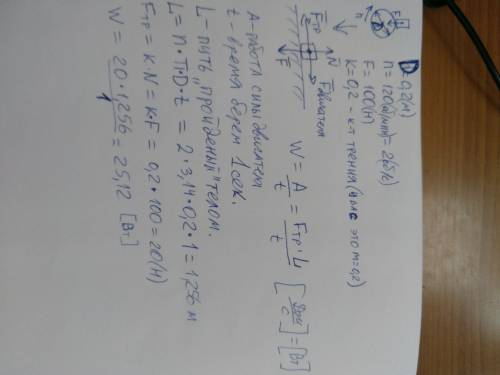 D=0,2(м)
n=120(об/мин)=2(об/с)
F=100(Н)
k=0,2 - к-т трения (в этом=0,2)
Fтр
N
Fдвигателя
F
W = A/t = Fтр·L/t [Дж/с] = [Вт]
A-работа силы двигателя
t - время берем 1сек.
L- путь, "пройденый" телом.
L = n·π·D·t = 2·3,14·0,2·1=1,256 м
Fтр = k·N = k·F = 0,2·100=20(Н)
W = 20·1,256/1 = 25,12 [Вт]